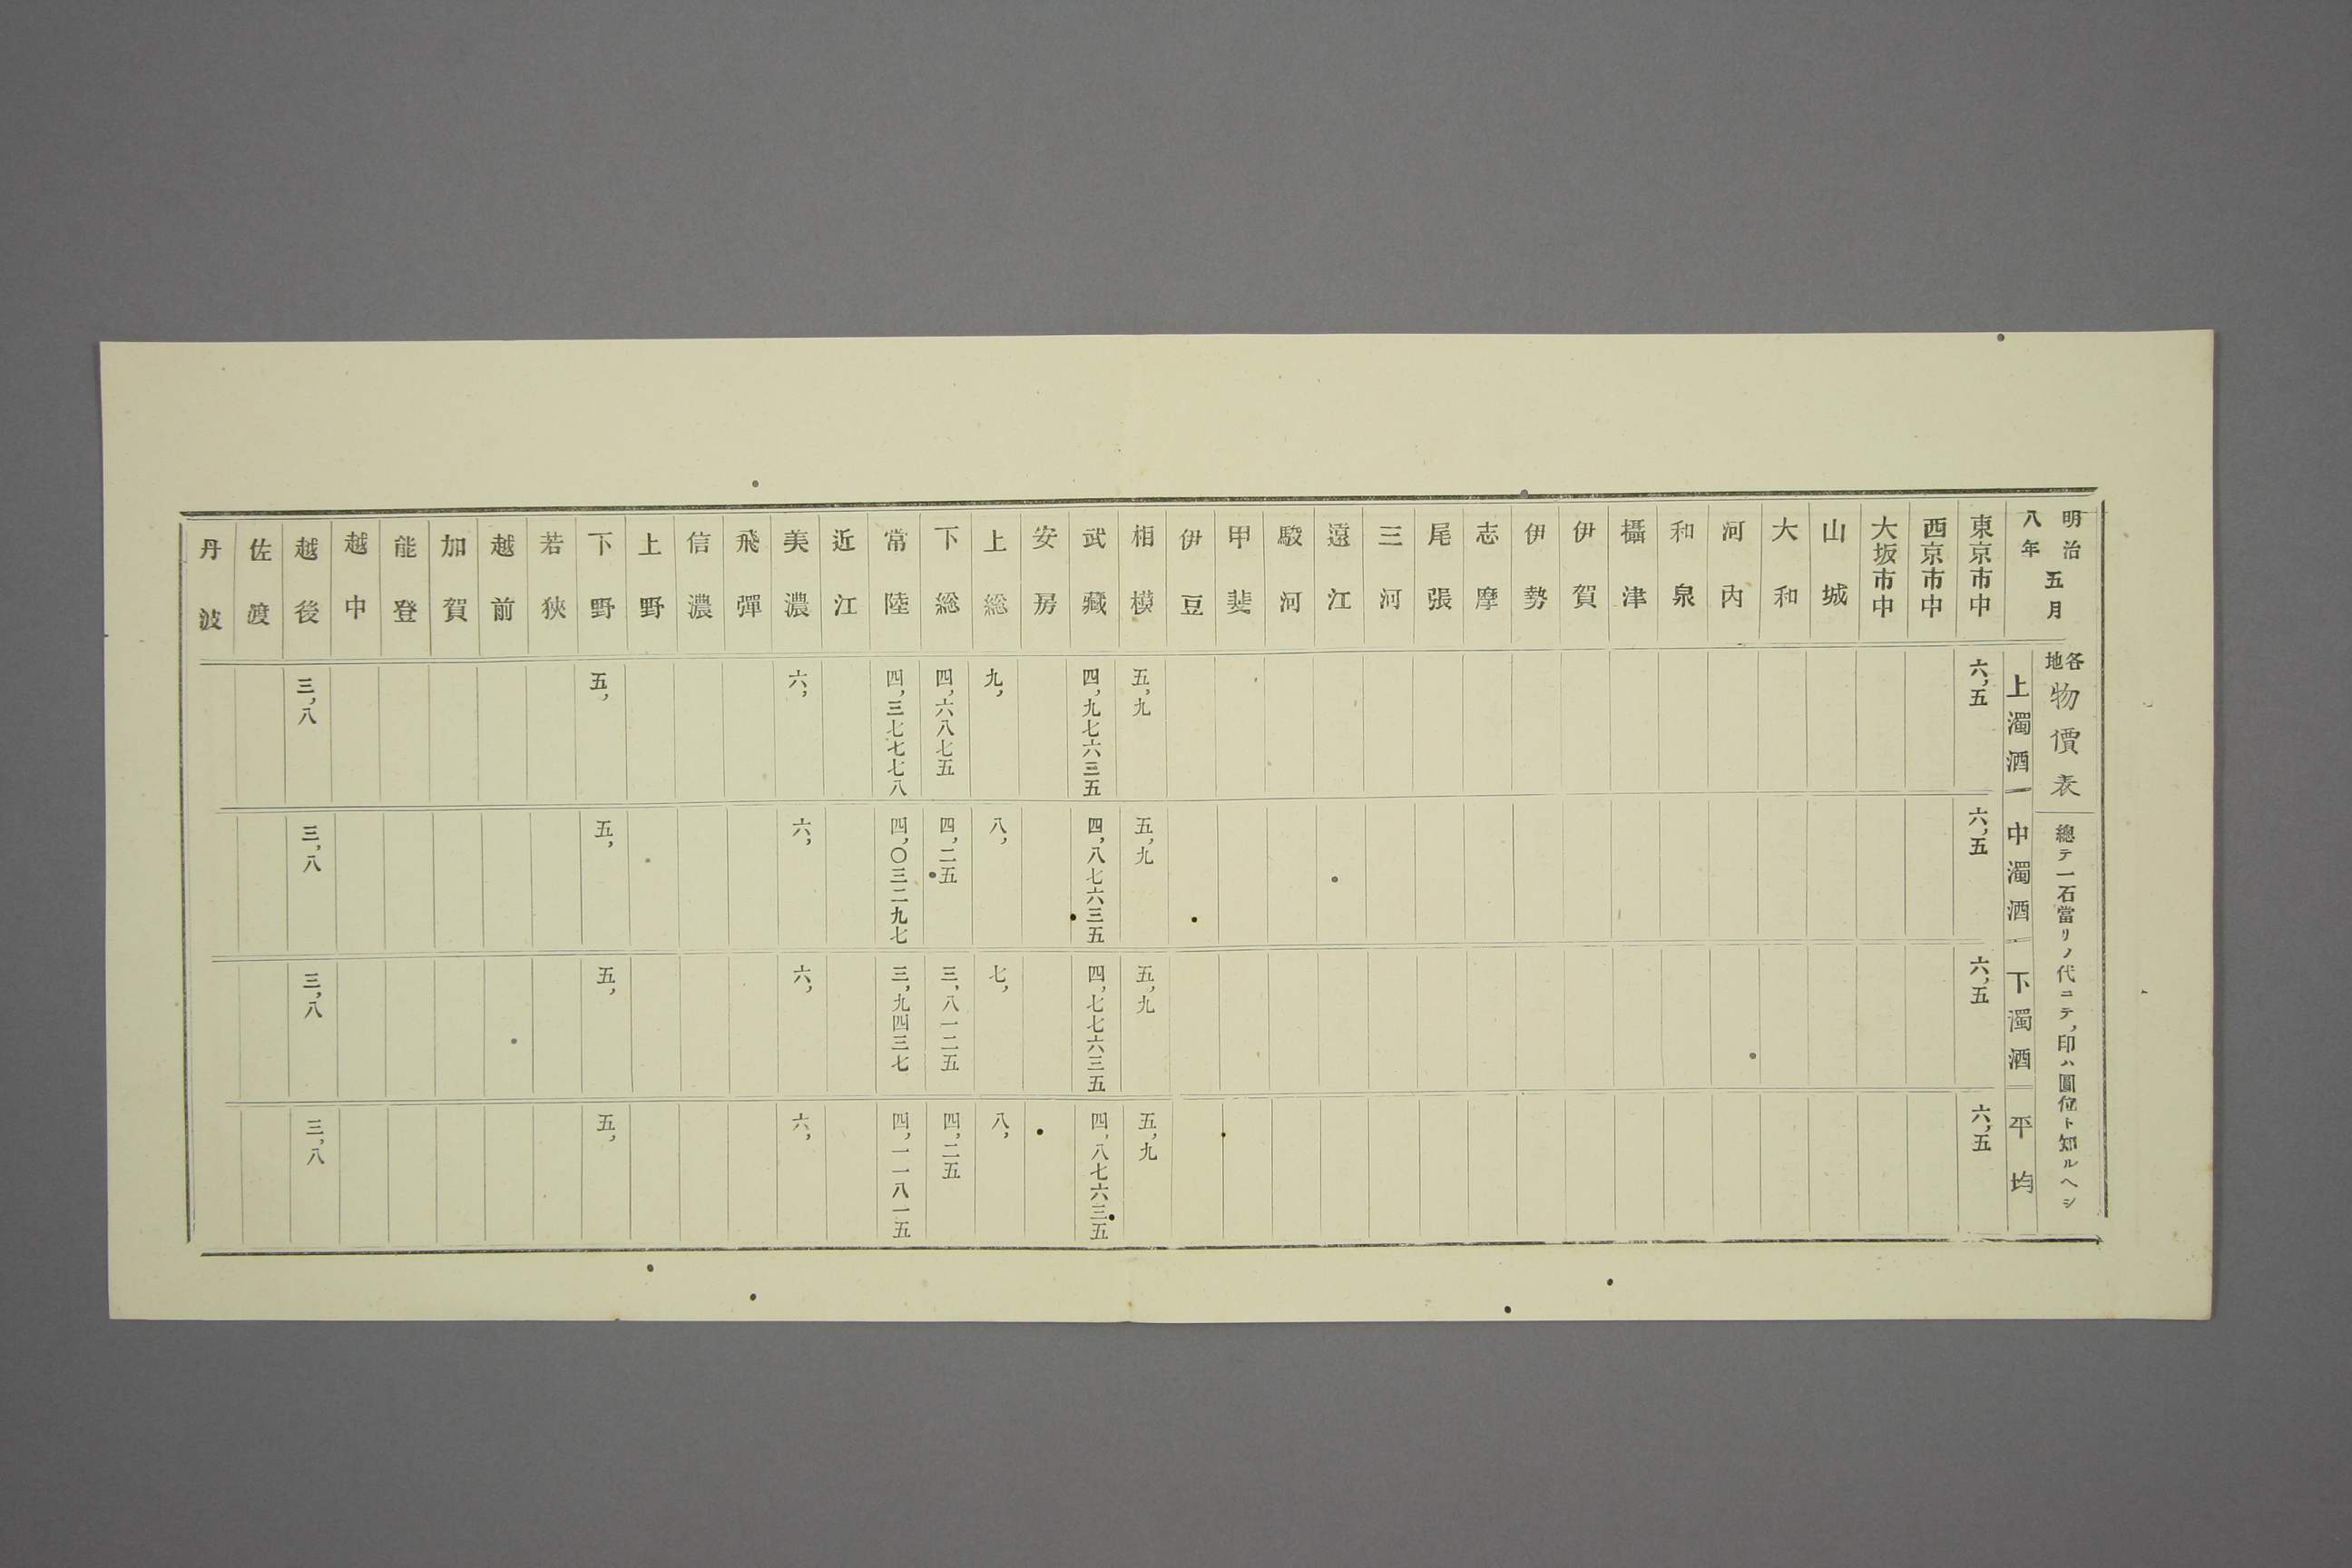 明治八年五月
各地物價表
總テ一石當リノ代ニテ，印ハ圓位ト知ルヘシ
上濁酒
中濁酒
下濁酒
平均
東京市中 六，五 六，五 六，五 六，五
西京市中
大坂市中
山城
大和
河内
和泉
攝津
伊賀
伊勢
志摩
尾張
三河
遠江
駿河
甲斐
伊豆
相模 五，九 五，九 五，九 五，九
武藏 四，九七六三五 四，八七六三五 四，七七六三五 四，八七六三五
安房
上総 九， 八， 七， 八，
下総 四，六八七五 四，二五 三，八一二五 四，二五
常陸 四，三七七七八 四，〇三二九七 三，九四三七 四，一一八一五
近江
美濃 六， 六， 六， 六，
飛彈
信濃
上野
下野 五， 五， 五， 五，
若狹
越前
加賀
能登
越中
越後 三，八 三，八 三，八 三，八
佐渡
丹波